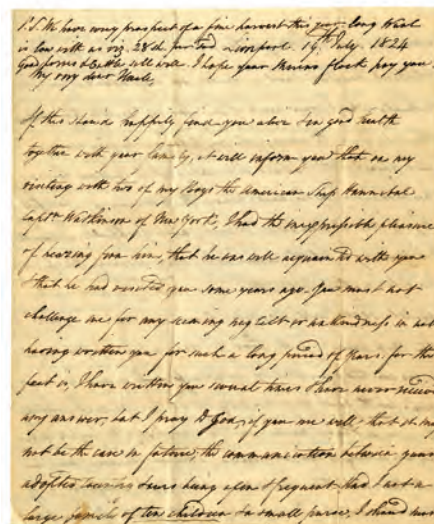 P.S. We have every prospect of a fine harvest this year. long Wool
is low with us viz. 28/ Liverpool. 19th July. 1824
Good forms & Cattle sell well. I hope your Merino flock pay you
My very dear Uncle,
If this should happily find you alive & in good health
together with your family, it will inform you that on my
visiting with two of my Boys the American Ship Hannibal
Captn Watkinson of New York, I had the inexpressible pleasure
of hearing from him, that he was well acquainted with you
& that he had visited you some years ago. You must not
challenge me for any seeming neglect or unkindness in not
having written you for such a long period of years. for the
fact is, I have written you several times & have never received
any answer, but I pray to God, if you are well, that it may
not be the case in future; the communication between your
adopted country & ours being open & frequent. Had I not a
large family of ten children & a small purse, I should